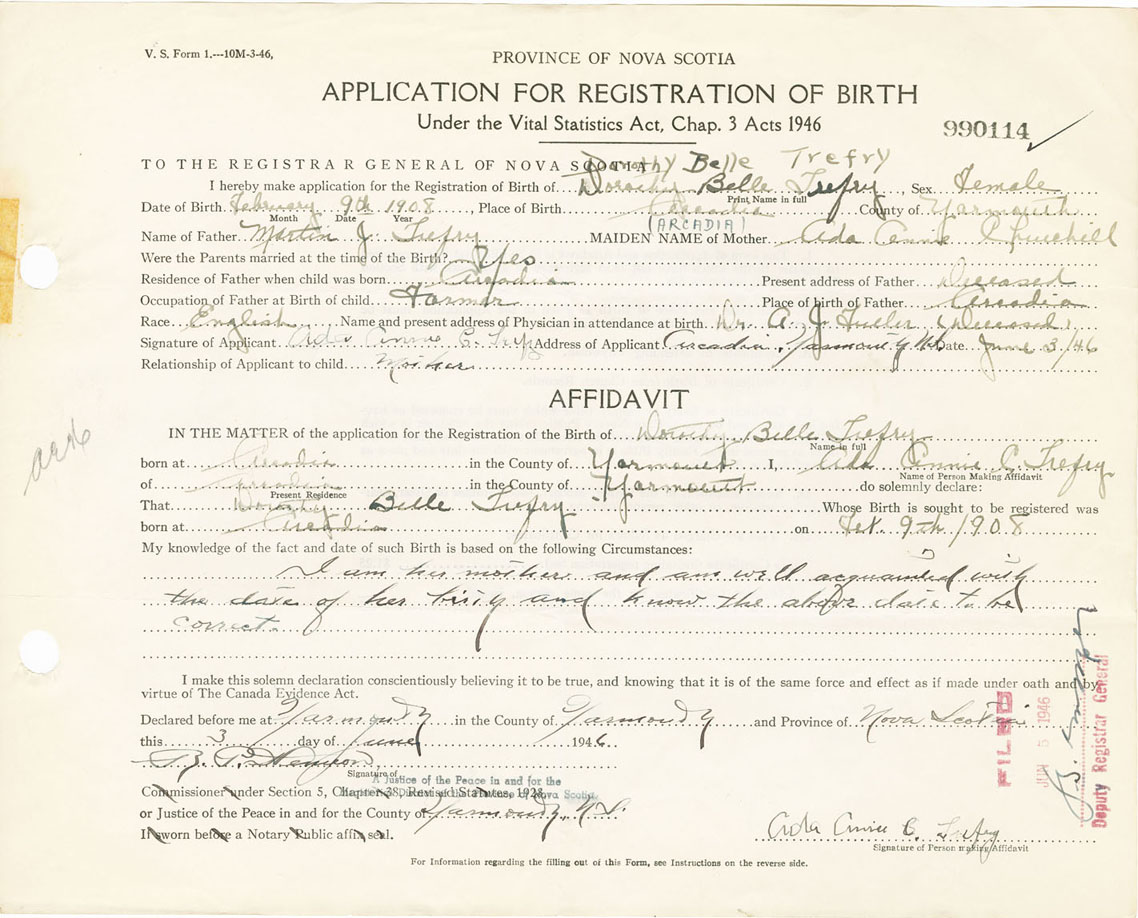 V. S. Form 1.---10M-3-46,
PROVINCE OF NOVA SCOTIA
APPLICATION FOR REGISTRATION OF BIRTH
Under the Vital Statistics Act, Chap. 3 Acts 1946
990114
Dorothy Belle Trefry
TO THE REGISTRAR GENERAL OF NOVA SCOTIA
I hereby make application for the Registration of Birth of Dorothy Belle Trefry, Sex Female
Print Name in full
Date of Birth February 9th 1908, Place of Birth Arcadia County of Yarmouth
Month Date Year (ARCADIA)
Name of Father Martin J. Trefry MAIDEN NAME of Mother Ada Annie Churchill
Were the Parents married at the time of the Birth? Yes
Residence of Father when child was born Arcadia Present address of Father Deceased
Occupation of Father at Birth of child Farmer Place of birth of Father Arcadia
Race English Name and present address of Physician in attendance at birth Dr. A. J. Fuller (Deceased)
Signature of Applicant Ada Annie C. Trefry Address of Applicant Arcadia, Yarmouth NS Date June 3/46
Relationship of Applicant to child Mother
AFFIDAVIT
IN THE MATTER of the application for the Registration of the Birth of Dorothy Belle Trefry
Name in full
born at Arcadia in the County of Yarmouth I, Ada Annie C. Trefry
Name of Person Making Affidavit
of Arcadia in the County of Yarmouth do solemnly declare:
Present Residence
That Dorothy Belle Trefry Whose Birth is sought to be registered was
born at Arcadia on Feb. 9th 1908
My knowledge of the fact and date of such Birth is based on the following Circumstances:
I am her mother and am well acquainted with
the date of her birth and know the above date to be
correct.
I make this solemn declaration conscientiously believing it to be true, and knowing that it is of the same force and effect as if made under oath and by
virtue of The Canada Evidence Act.
Declared before me at Yarmouth in the County of Yarmouth and Province of Nova Scotia
this 3 day of June 1946
Signature of
A Justice of the Peace in and for the
Commissioner under Section 5, Chapter 38, Revised Statutes, 1923
of Nova Scotia
or Justice of the Peace in and for the County of Yarmouth, N.S.
If sworn before a Notary Public affix seal.
Ada Annie C. Trefry
Signature of Person making Affidavit
For Information regarding the filling out of this Form, see Instructions on the reverse side.
FILED
JUN 5 1946
Deputy Registrar General